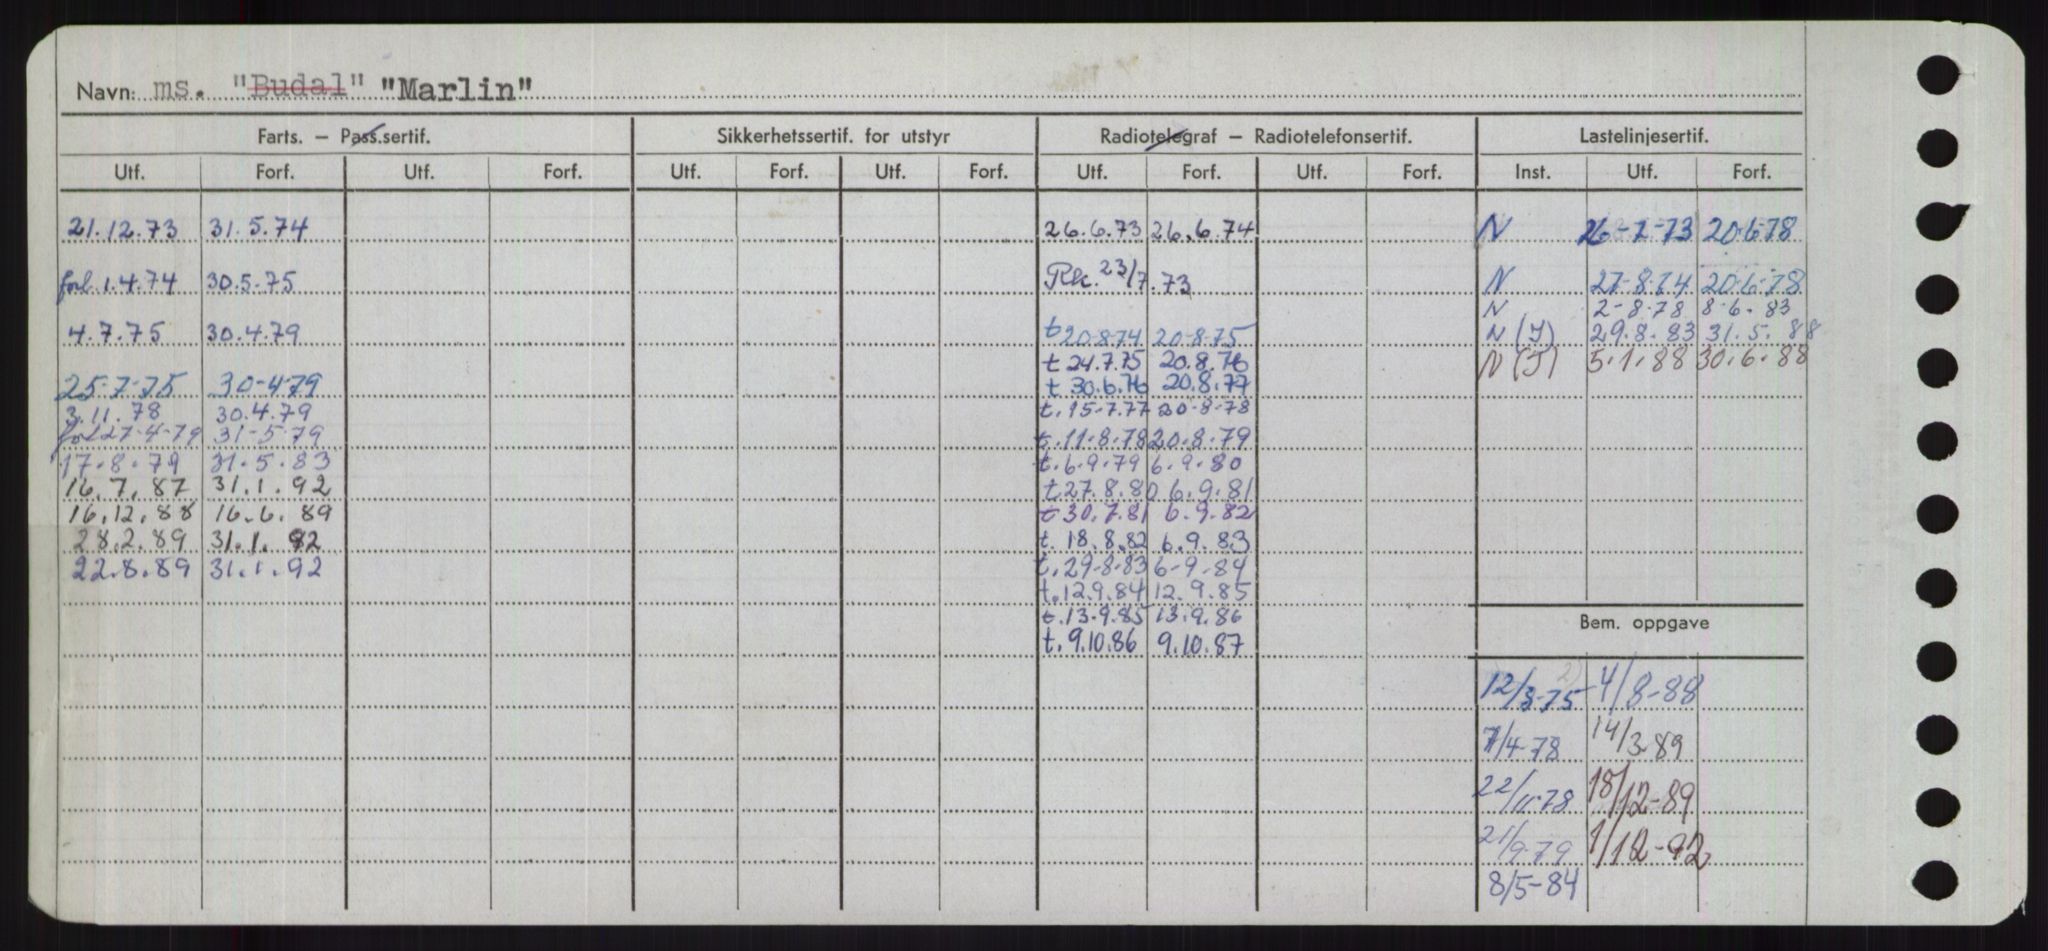 Navn: ms. "Budal" "Marlin"
Farts. – Pass.sertif. Sikkerhetssertif. for utstyr Radiotelegraf – Radiotelefonsertif. Lastelinjesertif.
Utf. Forf. Utf. Forf. Utf. Forf. Utf. Forf. Utf. Forf. Utf. Forf. Inst. Utf. Forf.
21.12.73 31.5.74 26.6.73 26.6.74 N 26-7-73 20-6-78
forl. 1.4.74 30.5.75 Rk. 23/7.73 N 27-8.74 20-6-78
N 2-8-78 8-6.83
4.7.75 30.4.79 t 20-8-74 20-8-75 N (I) 29.8.83 31.5.88
t 24.7.75 20.8.76 N (I) 5.1.88 30.6.88
25-7-75 30-4-79 t 30.6.76 20.8.77
3.11.78 30.4.79 t.15-7.77 20-8-78
forl 27-4-79 31-5-79 t.11.8.78 20.8.79
17.8.79 31.5.83 t.6.9.79 6.9.80
16.7.87 31.1.92 t 27.8.80 6.9.81
16.12.88 16.6.89 t 30.7.81 6.9.82
28.2.89 31.1.92 t. 18.8.82 6.9.83
22.8.89 31.1.92 t.29-8-83 6-9-84
t.12.9.84 12.9.85
t.13.9.85 13.9.86
Bem. oppgave
t.9.10.86 9.10.87
12/3-75 2) 4/8-88
7/4-78 14/3-89
22/11-78 18/12-89
21/9-79 1/12-92
8/5-84